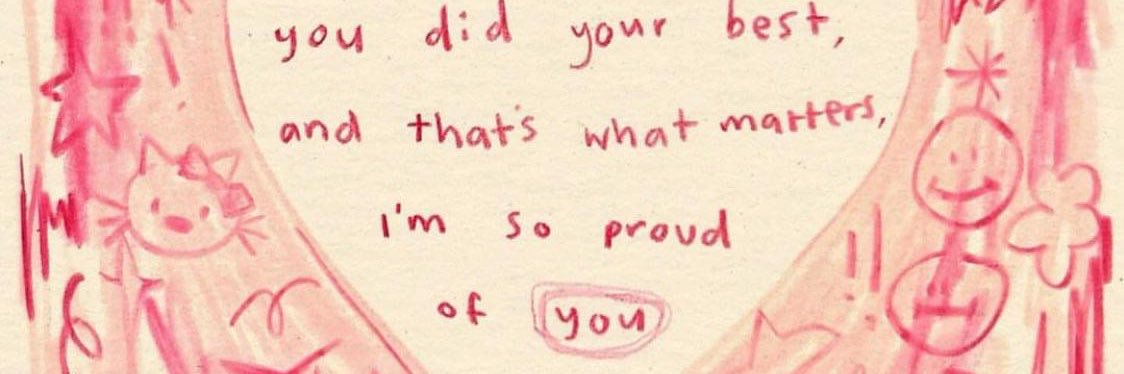 you did your best,
and that's what matters,
i'm so proud
of you